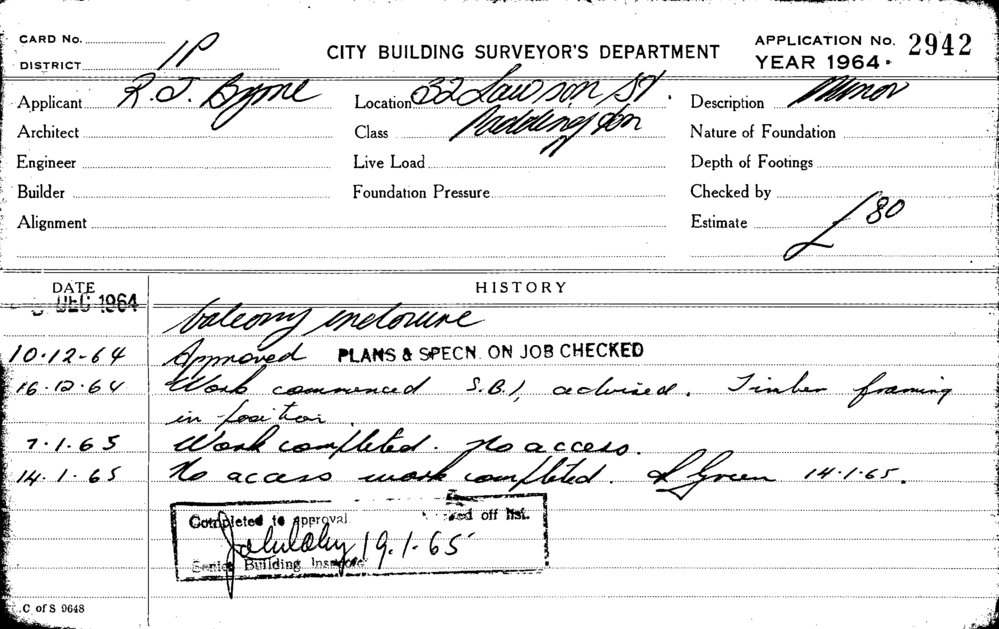 CARD No.
DISTRICT 1P
CITY BUILDING SURVEYOR'S DEPARTMENT
APPLICATION No. 2942
YEAR 1964.
Applicant R. J. Byrne
Location 32 Lawson St.
Description Minor
Architect
Class Paddington
Nature of Foundation
Engineer
Live Load
Depth of Footings
Builder
Foundation Pressure
Checked by
Alignment
Estimate £80
DATE
HISTORY
DEC 1964
balcony enclosure
10.12-64 Approved PLANS & SPECN. ON JOB CHECKED
16.12.64 Work commenced S.B.I, advised. Timber framing
in position.
7.1.65 Work completed. No access.
14.1.65 No access work completed. Green 14.1.65.
Completed to approval off list.
19.1.65
Senior Building Inspector
C of S 9648